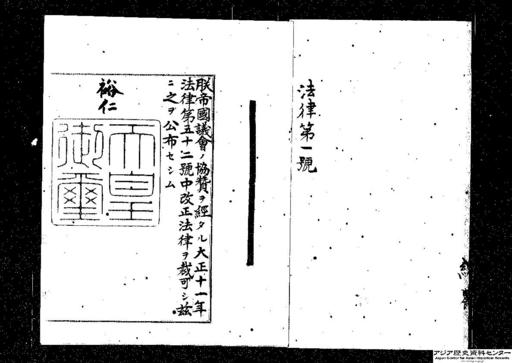 法律第一號
朕帝國議會ノ協贊ヲ經タル大正十一年
法律第五十二號中改正法律ヲ裁可シ茲
ニ之ヲ公布セシム
裕仁
天皇
御璽
アジア歴史資料センター
Japan Center for Asian Historical Records